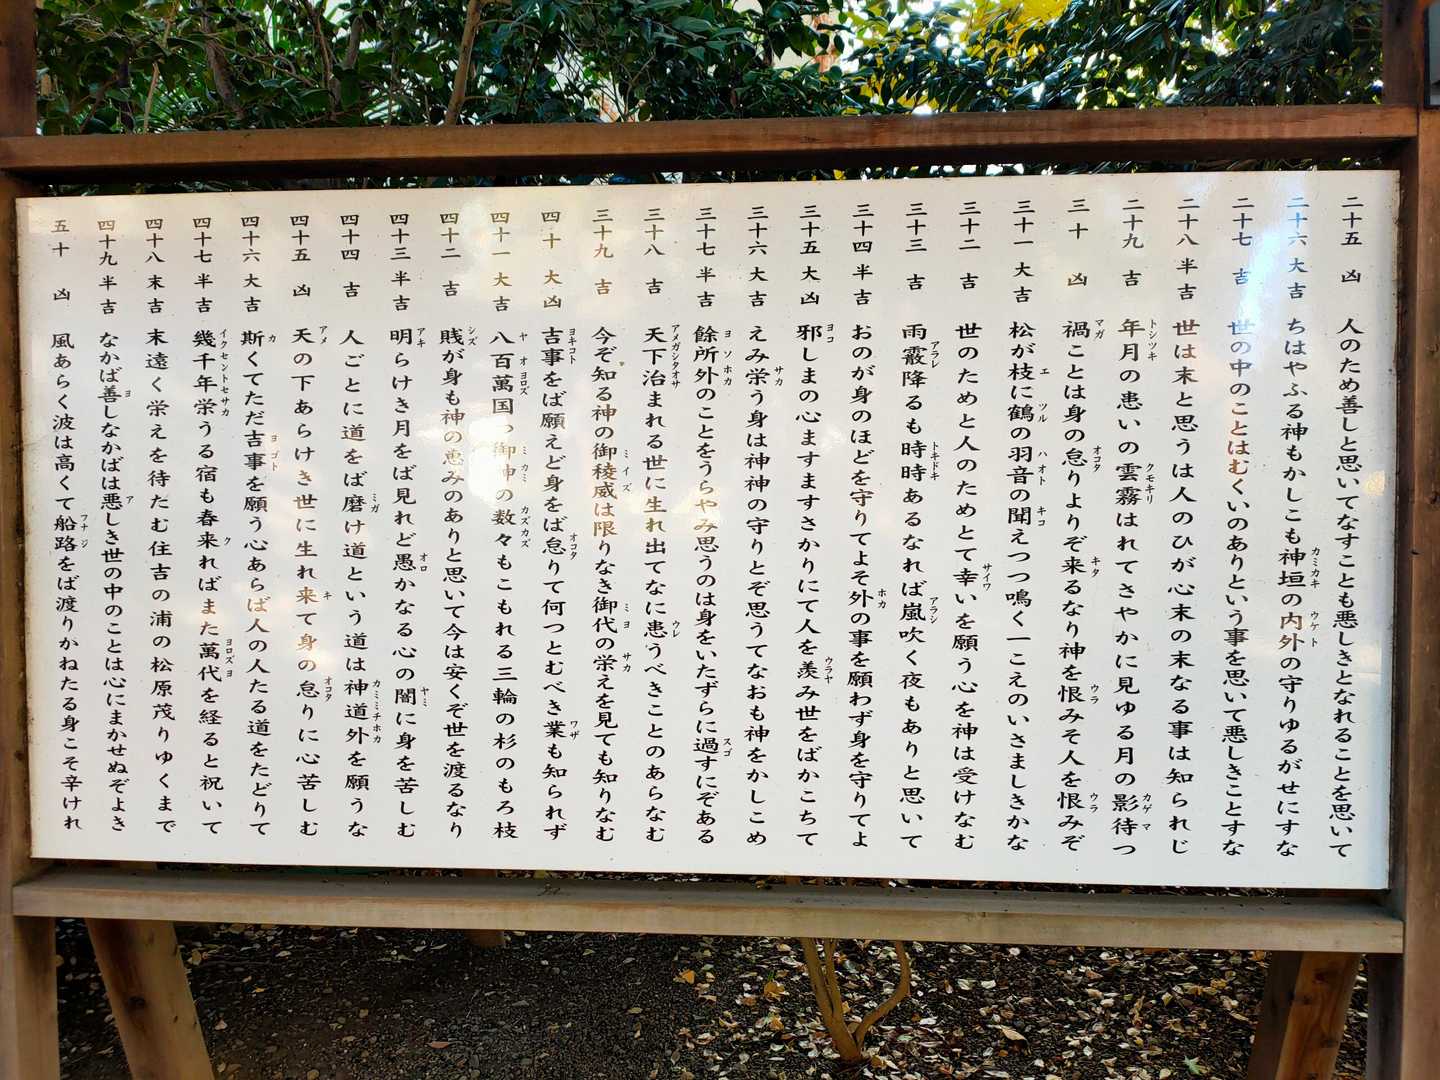 二十五 凶 人のため善しと思いてなすことも悪しきとなれることを思いて
二十六 大吉 ちはやふる神もかしこも神垣の内外の守りゆるがせにすな
二十七 吉 世の中のことはむくいのありという事を思いて悪しきことすな
二十八 半吉 世は末と思うは人のひが心末の末なる事は知られじ
二十九 吉 年月の患いの雲霧はれてさやかに見ゆる月の影待つ
三十 凶 禍ことは身の怠りよりぞ来るなり神を恨みそ人を恨みぞ
三十一 大吉 松が枝に鶴の羽音の聞えつつ鳴く一こえのいさましきかな
三十二 吉 世のためと人のためとて幸いを願う心を神は受けなむ
三十三 吉 雨霰降るも時時あるなれば嵐吹く夜もありと思いて
三十四 半吉 おのが身のほどを守りてよそ外の事を願わず身を守りてよ
三十五 大凶 邪しまの心ますますさかりにて人を羨み世をばかこちて
三十六 大吉 えみ栄う身は神神の守りとぞ思うてなおも神をかしこめ
三十七 半吉 餘所外のことをうらやみ思うのは身をいたずらに過すにぞある
三十八 吉 天下治まれる世に生れ出てなに患うべきことのあらなむ
三十九 吉 今ぞ知る神の御稜威は限りなき御代の栄えを見ても知りなむ
四十 大凶 吉事をば願えど身をば怠りて何つとむべき業も知られず
四十一 大吉 八百萬国つ御神の数々もこもれる三輪の杉のもろ枝
四十二 吉 賎が身も神の恵みのありと思いて今は安くぞ世を渡るなり
四十三 半吉 明らけき月をば見れど愚かなる心の闇に身を苦しむ
四十四 吉 人ごとに道をば磨け道という道は神道外を願うな
四十五 凶 天の下あらけき世に生れ来て身の怠りに心苦しむ
四十六 大吉 斯くてただ吉事を願う心あらば人の人たる道をたどりて
四十七 半吉 幾千年栄うる宿も春来ればまた萬代を経ると祝いて
四十八 末吉 末遠く栄えを待たむ住吉の浦の松原茂りゆくまで
四十九 半吉 なかば善しなかばは悪しき世の中のことは心にまかせぬぞよき
五十 凶 風あらく波は高くて船路をば渡りかねたる身こそ辛けれ